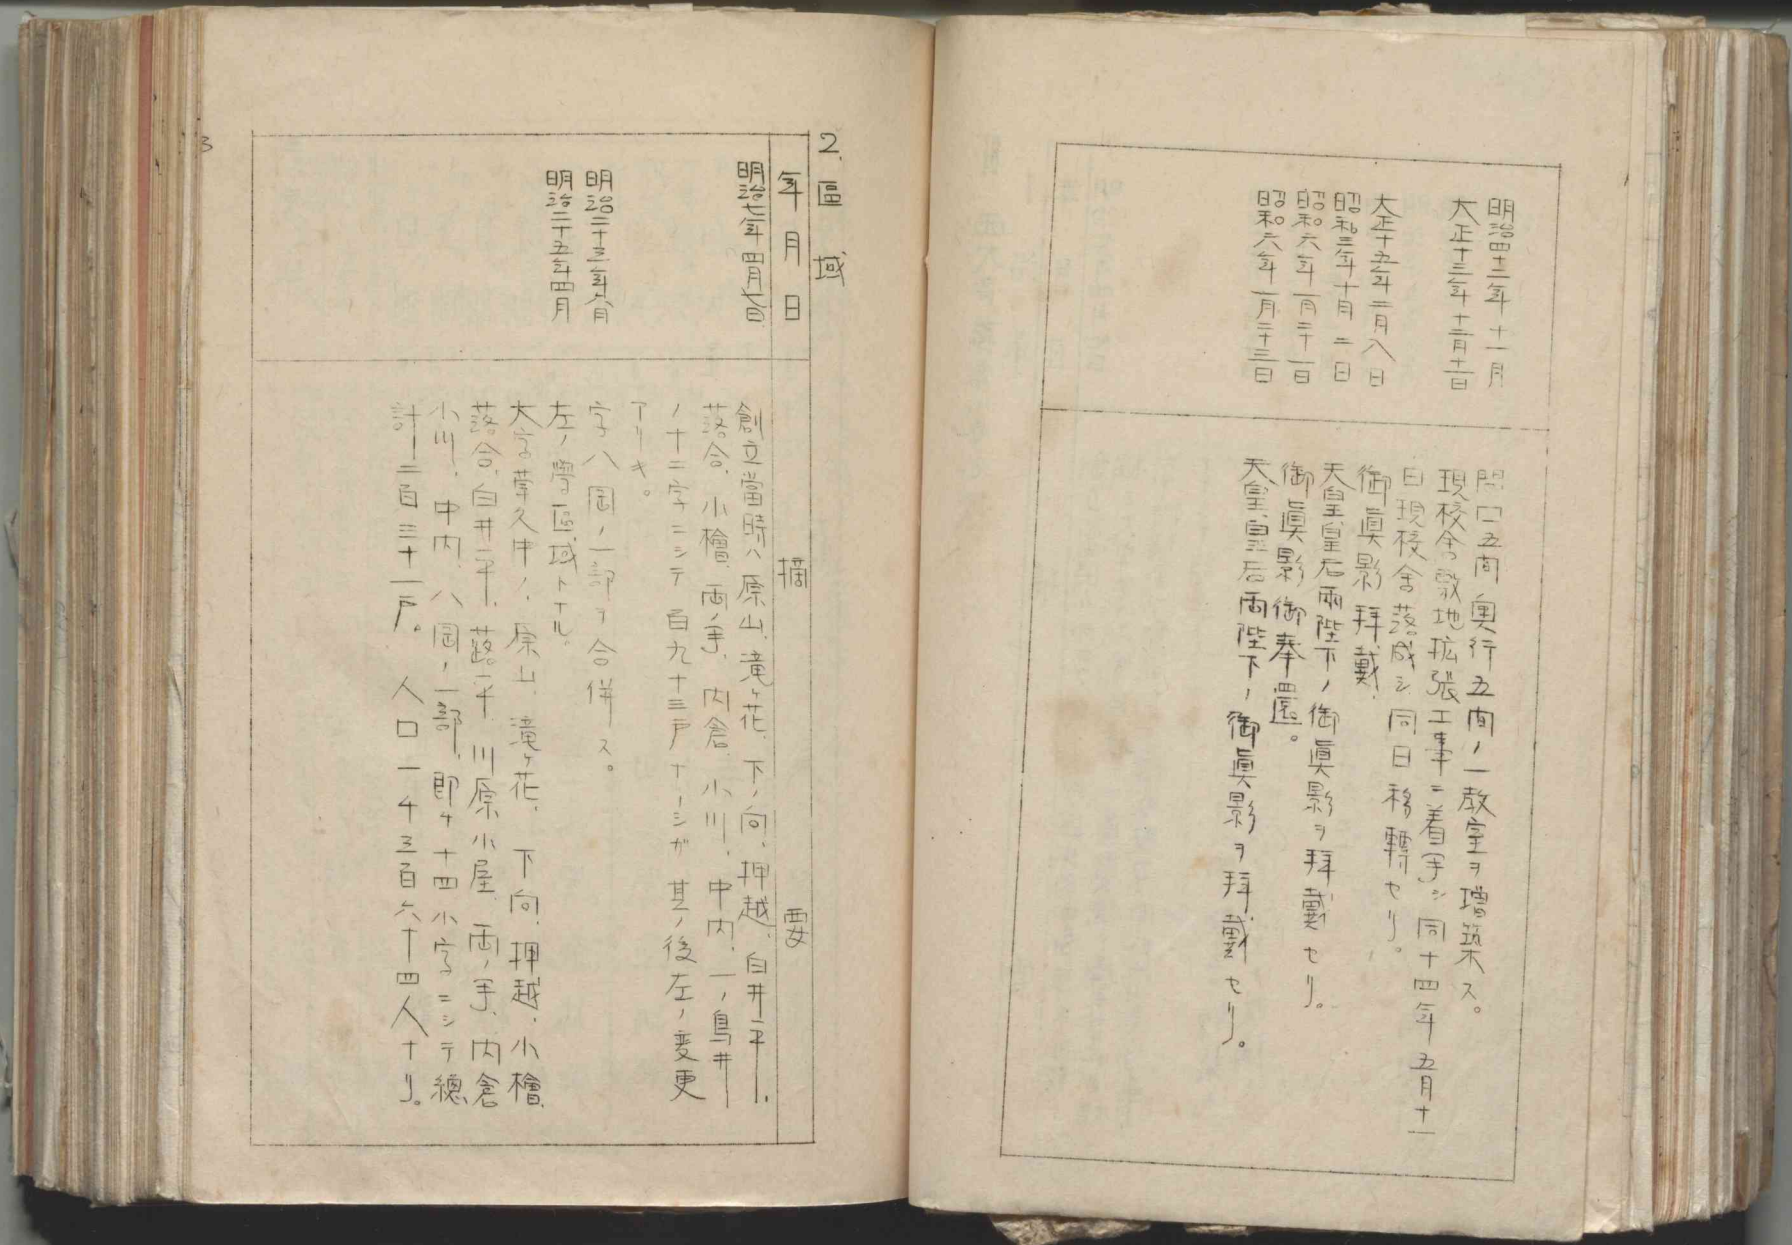 明治四十二年十一月
大正十三年十二月十一日
大正十五年二月八日
昭和三年十月二日
昭和六年一月二十一日
昭和六年一月二十三日
間口五間奥行五間ノ一教室ヲ増築ス。
現校舎敷地拡張工事ニ着手シ同十四年五月十一
日現校舎落成シ同日移轉セリ。
御眞影拝戴、
天皇皇后兩陛下ノ御眞影ヲ拝戴セリ。
御眞影御奉還。
天皇皇后両陛下ノ御眞影ヲ拝戴セリ。
2、區域
年月日
摘要
明治七年四月七日
明治二十三年六月
明治二十五年四月
創立當時ハ原山、滝ヶ花、下ノ向、押越、白井平、
落合、小檜、両ノ手、内倉、小川、中内、一ノ鳥井
ノ十二字ニシテ百九十三戸ナーシガ其ノ後左ノ変更
アリキ。
字八岡ノ一部ヲ合併ス。
左ノ學區域トナル。
大字草久中ノ、原山、滝ヶ花、下向、押越、小檜、
落合、白井平、蕗平、川原小屋、両ノ手、内倉
小川、中内、八岡ノ一部、即チ十四小字ニシテ總
計二百三十一戸。人口一千三百六十四人ナリ。
3